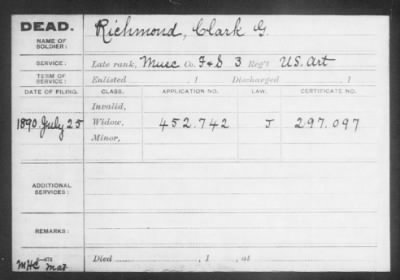 DEAD.
Richmond, Clark G.
NAME OF SOLDIER:
SERVICE: Late rank, Music Co. F&D 3 Reg't U.S. Art
TERM OF SERVICE: Enlisted , 1 Discharged , 1
DATE OF FILING. CLASS. APPLICATION NO. LAW. CERTIFICATE NO.
Invalid,
1890 July 25 Widow, 452.742 J 297.097
Minor,
ADDITIONAL SERVICES:
REMARKS:
Died , 1 , at
MHC